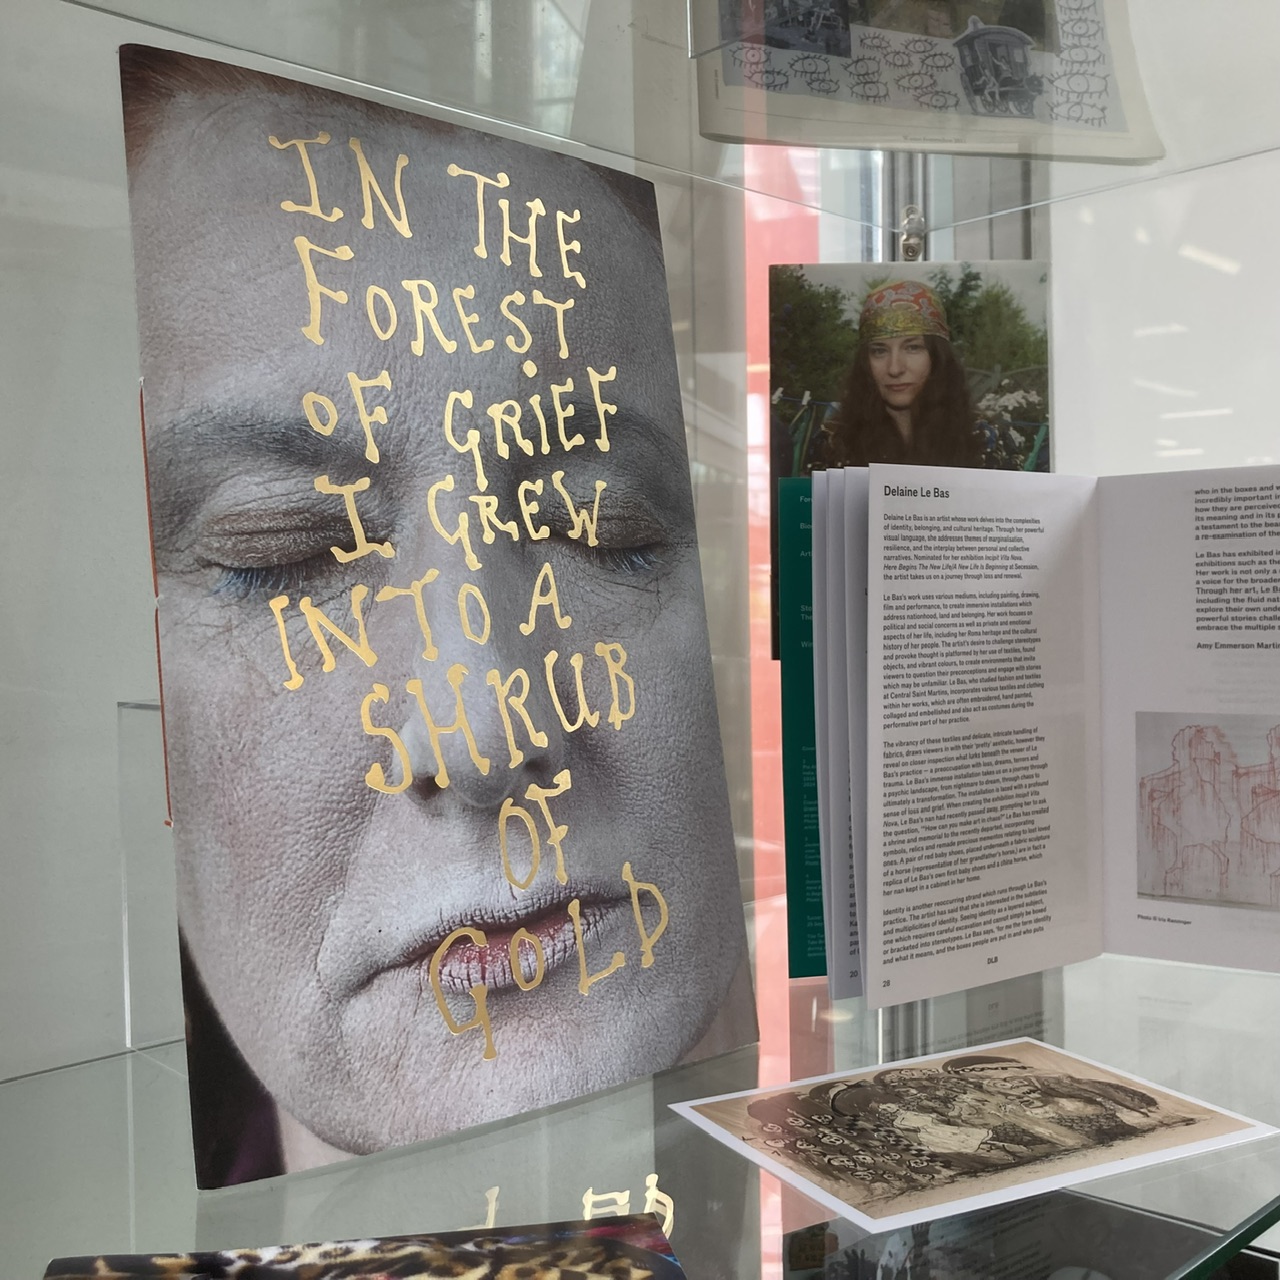 IN THE
FOREST
OF GRIEF
I GREW
INTO A
SHRUB
OF
GOLD
Delaine Le Bas
Delaine Le Bas is an artist whose work delves into the complexities
of identity, belonging, and cultural heritage. Through her powerful
visual language, she addresses themes of marginalisation,
resilience, and the interplay between personal and collective
narratives. Nominated for her exhibition Incipit Vita Nova.
Here Begins The New Life/A New Life Is Beginning at Secession,
the artist takes us on a journey through loss and renewal.
Le Bas's work uses various mediums, including painting, drawing,
film and performance, to create immersive installations which
address nationhood, land and belonging. Her work focuses on
political and social concerns as well as private and emotional
aspects of her life, including her Roma heritage and the cultural
history of her people. The artist's desire to challenge stereotypes
and provoke thought is platformed by her use of textiles, found
objects, and vibrant colours, to create environments that invite
viewers to question their preconceptions and engage with stories
which may be unfamiliar. Le Bas, who studied fashion and textiles
at Central Saint Martins, incorporates various textiles and clothing
within her works, which are often embroidered, hand painted,
collaged and embellished and also act as costumes during the
performative part of her practice.
The vibrancy of these textiles and delicate, intricate handling of
fabrics, draws viewers in with their 'pretty' aesthetic, however they
reveal on closer inspection what lurks beneath the veneer of Le
Bas's practice – a preoccupation with loss, dreams, terrors and
trauma. Le Bas's immense installation takes us on a journey through
a psychic landscape, from nightmare to dream, through chaos to
ultimately a transformation. The installation is laced with a profound
sense of loss and grief. When creating the exhibition Incipit Vita
Nova, Le Bas's nan had recently passed away, prompting her to ask
the question, "How can you make art in chaos?" Le Bas has created
a shrine and memorial to the recently departed, incorporating
symbols, relics and remade precious mementos relating to lost loved
ones. A pair of red baby shoes, placed underneath a fabric sculpture
of a horse (representative of her grandfather's horse,) are in fact a
replica of Le Bas's own first baby shoes and a china horse, which
her nan kept in a cabinet in her home.
Identity is another reoccurring strand which runs through Le Bas's
practice. The artist has said that she is interested in the subtleties
and multiplicities of identity. Seeing identity as a layered subject,
one which requires careful excavation and cannot simply be boxed
or bracketed into stereotypes. Le Bas says, 'for me the term identity
and what it means, and the boxes people are put in and who puts
28
DLB
who in the boxes and
incredibly important
how they are perceived
its meaning and in its
a testament to the
a re-examination of the
Le Bas has exhibited
exhibitions such as the
Her work is not only a
a voice for the broader
Through her art, Le
including the fluid
explore their own
powerful stories
embrace the multiple
Amy Emmerson
Photo © Iris Ranzinger
20